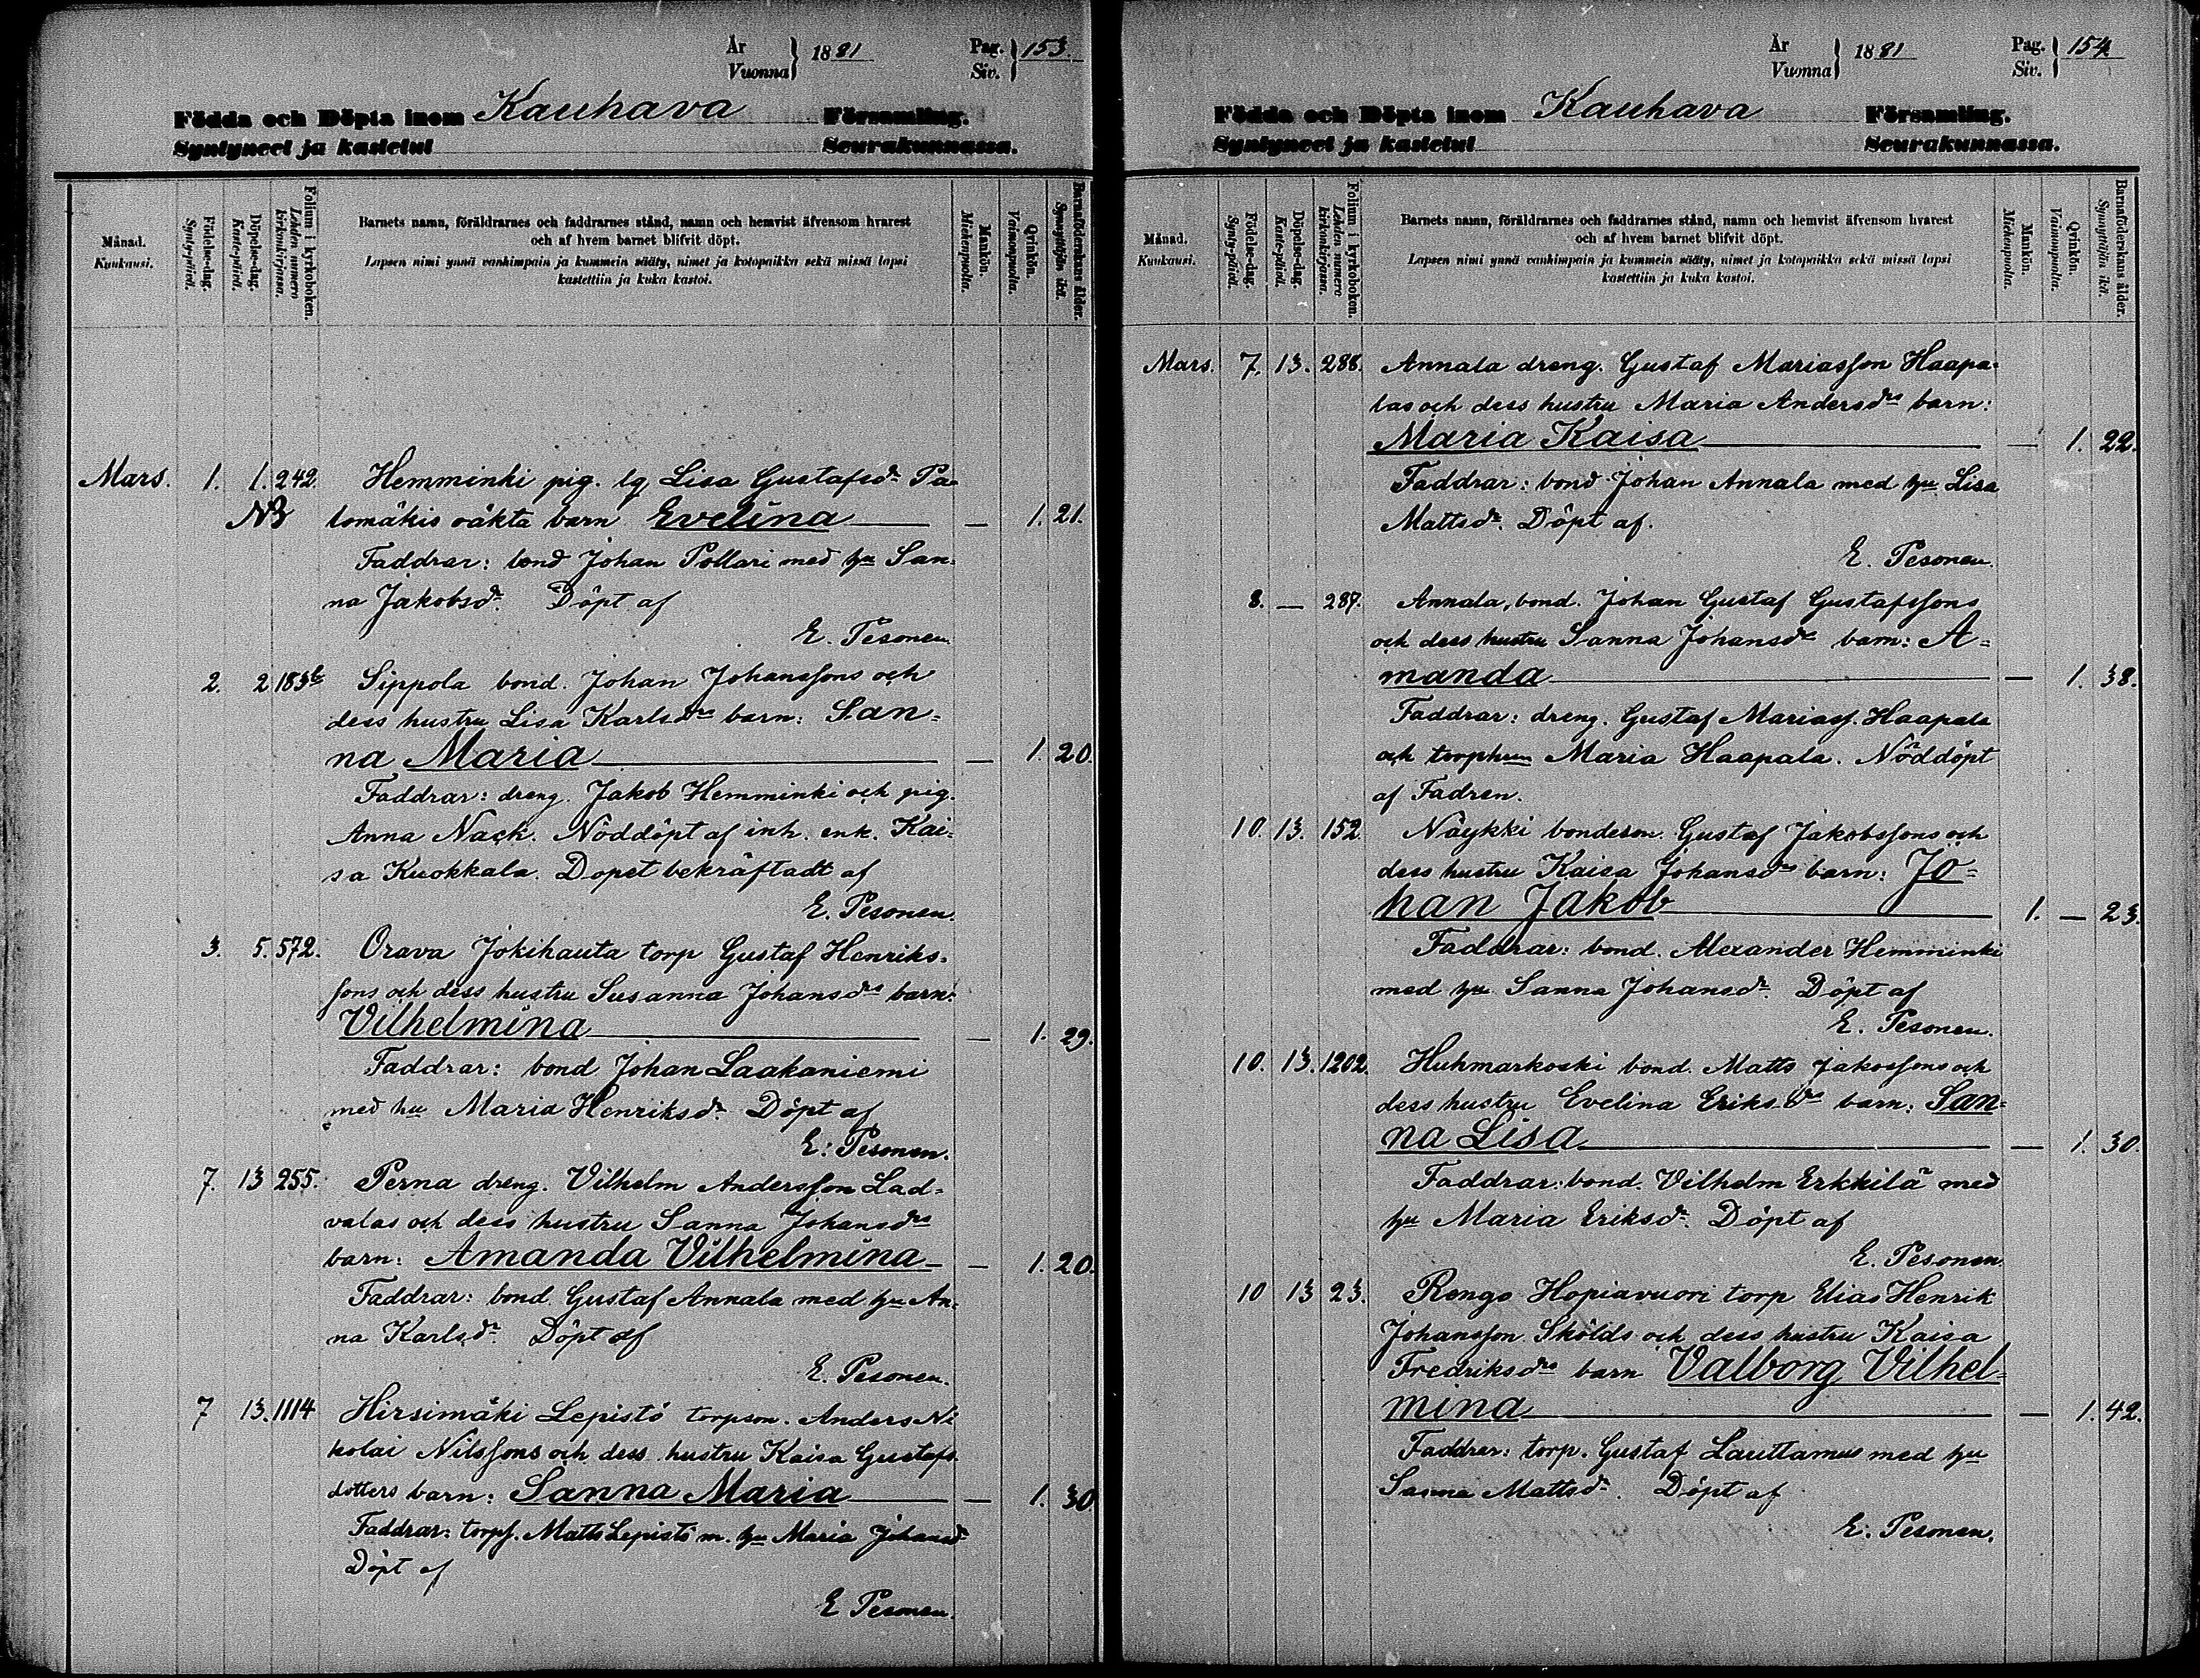 År Vuonna } 1881 Pag. Siv. } 153.
Födda och Döpta inom Kauhava Församling.
Syntyneet ja kastetut Seurakunnassa.
Månad. Kuukausi.
Födelse-dag. Syntypäivä.
Döpelse-dag. Kastepäivä.
Folium i kyrkoboken. Lehden numero kirkonkirjassa.
Barnets namn, föräldrarnes och faddrarnes stånd, namn och hemvist äfvensom hvarest
och af hvem barnet blifvit döpt.
Lapsen nimi ynnä vanhimpain ja kummein sääty, nimet ja kotopaikka sekä missä lapsi
kastettiin ja kuka kastoi.
Mankön. Miehenpuolia.
Qvinkön. Vaimonpuolia.
Barnaföderskans ålder. Synnyttäjän ikä.
Mars. 1. 1. 242. Hemminki pig. lg. Lisa Gustafsdr Pa-
NB lomäkis oäkta barn Evelina — 1. 21.
Faddrar: bond Johan Pollari med hu San-
na Jakobsdr. Döpt af
E. Pesonen.
2. 2 183b Sippola bond. Johan Johanssons och
dess hustru Lisa Karlsdrs barn: San-
na Maria — 1. 20.
Faddrar: dreng. Jakob Hemminki och pig.
Anna Nack. Nöddöpt af inh. enk. Kai-
sa Kuokkala. Dopet bekräftadt af
E. Pesonen.
3. 5. 572. Orava Jokihauta torp Gustaf Henriks-
sons och dess hustru Susanna Johansdrs barn:
Vilhelmina — 1. 29.
Faddrar: bond Johan Laakaniemi
med hu Maria Henriksdr. Döpt af
E. Pesonen.
7. 13 255. Perna dreng. Vilhelm Andersson Lad-
valas och dess hustru Sanna Johansdrs
barn: Amanda Vilhelmina — 1. 20.
Faddrar: bond. Gustaf Annala med hu An-
na Karlsdr. Döpt af
E. Pesonen.
7 13. 1114 Hirsimäki Lepistö torpson. Anders Ni
kolai Nilssons och dess hustru Kaisa Gustafs-
dotters barn: Sanna Maria — 1. 30
Faddrar: torpf. Matts Lepistö m. hu Maria Johansdr
Döpt af
E Pesonen.
År Vuonna } 1881 Pag. Siv. } 154
Födda och Döpta inom Kauhava Församling.
Syntyneet ja kastetut Seurakunnassa.
Månad. Kuukausi.
Födelse-dag. Syntypäivä.
Döpelse-dag. Kastepäivä.
Folium i kyrkoboken. Lehden numero kirkonkirjassa.
Barnets namn, föräldrarnes och faddrarnes stånd, namn och hemvist äfvensom hvarest
och af hvem barnet blifvit döpt.
Lapsen nimi ynnä vanhimpain ja kummein sääty, nimet ja kotopaikka sekä missä lapsi
kastettiin ja kuka kastoi.
Mankön. Miehenpuolia.
Qvinkön. Vaimonpuolia.
Barnaföderskans ålder. Synnyttäjän ikä.
Mars. 7. 13. 288. Annala dreng. Gustaf Mariasson Haapa-
las och dess hustru Maria Andersdrs barn:
Maria Kaisa — 1. 22.
Faddrar: bond Johan Annala med hu Lisa
Mattsdr. Döpt af.
E. Pesonen.
8. — 287. Annala, bond. Johan Gustaf Gustafssons
och dess hustru Sanna Johansdrs barn: A-
manda — 1. 38.
Faddrar: dreng. Gustaf Mariass. Haapala
och torphun Maria Haapala. Nöddöpt
af Fadren.
10. 13. 152. Näykki bondeson. Gustaf Jakobssons och
dess hustru Kaisa Johansdrs barn: Jo-
han Jakob 1. — 23.
Faddrar: bond. Alexander Hemminki
med hu Sanna Johansdr. Döpt af
E. Pesonen.
10. 13. 1202. Huhmarkoski bond. Matts Jakossons och
dess hustru Evelina Eriksdrs barn: San-
na Lisa — 1. 30.
Faddrar: bond. Vilhelm Erkkilä med
hu Maria Eriksdr. Döpt af
E. Pesonen.
10 13 23. Rengo Hopiavuori torp Elias Henrik
Johansson Skölds och dess hustru Kaisa
Fredriksdrs barn Valborg Vilhel-
mina — 1. 42.
Faddrar: torp. Gustaf Lauttamus med hu
Sanna Mattsdr. Döpt af
E. Pesonen.